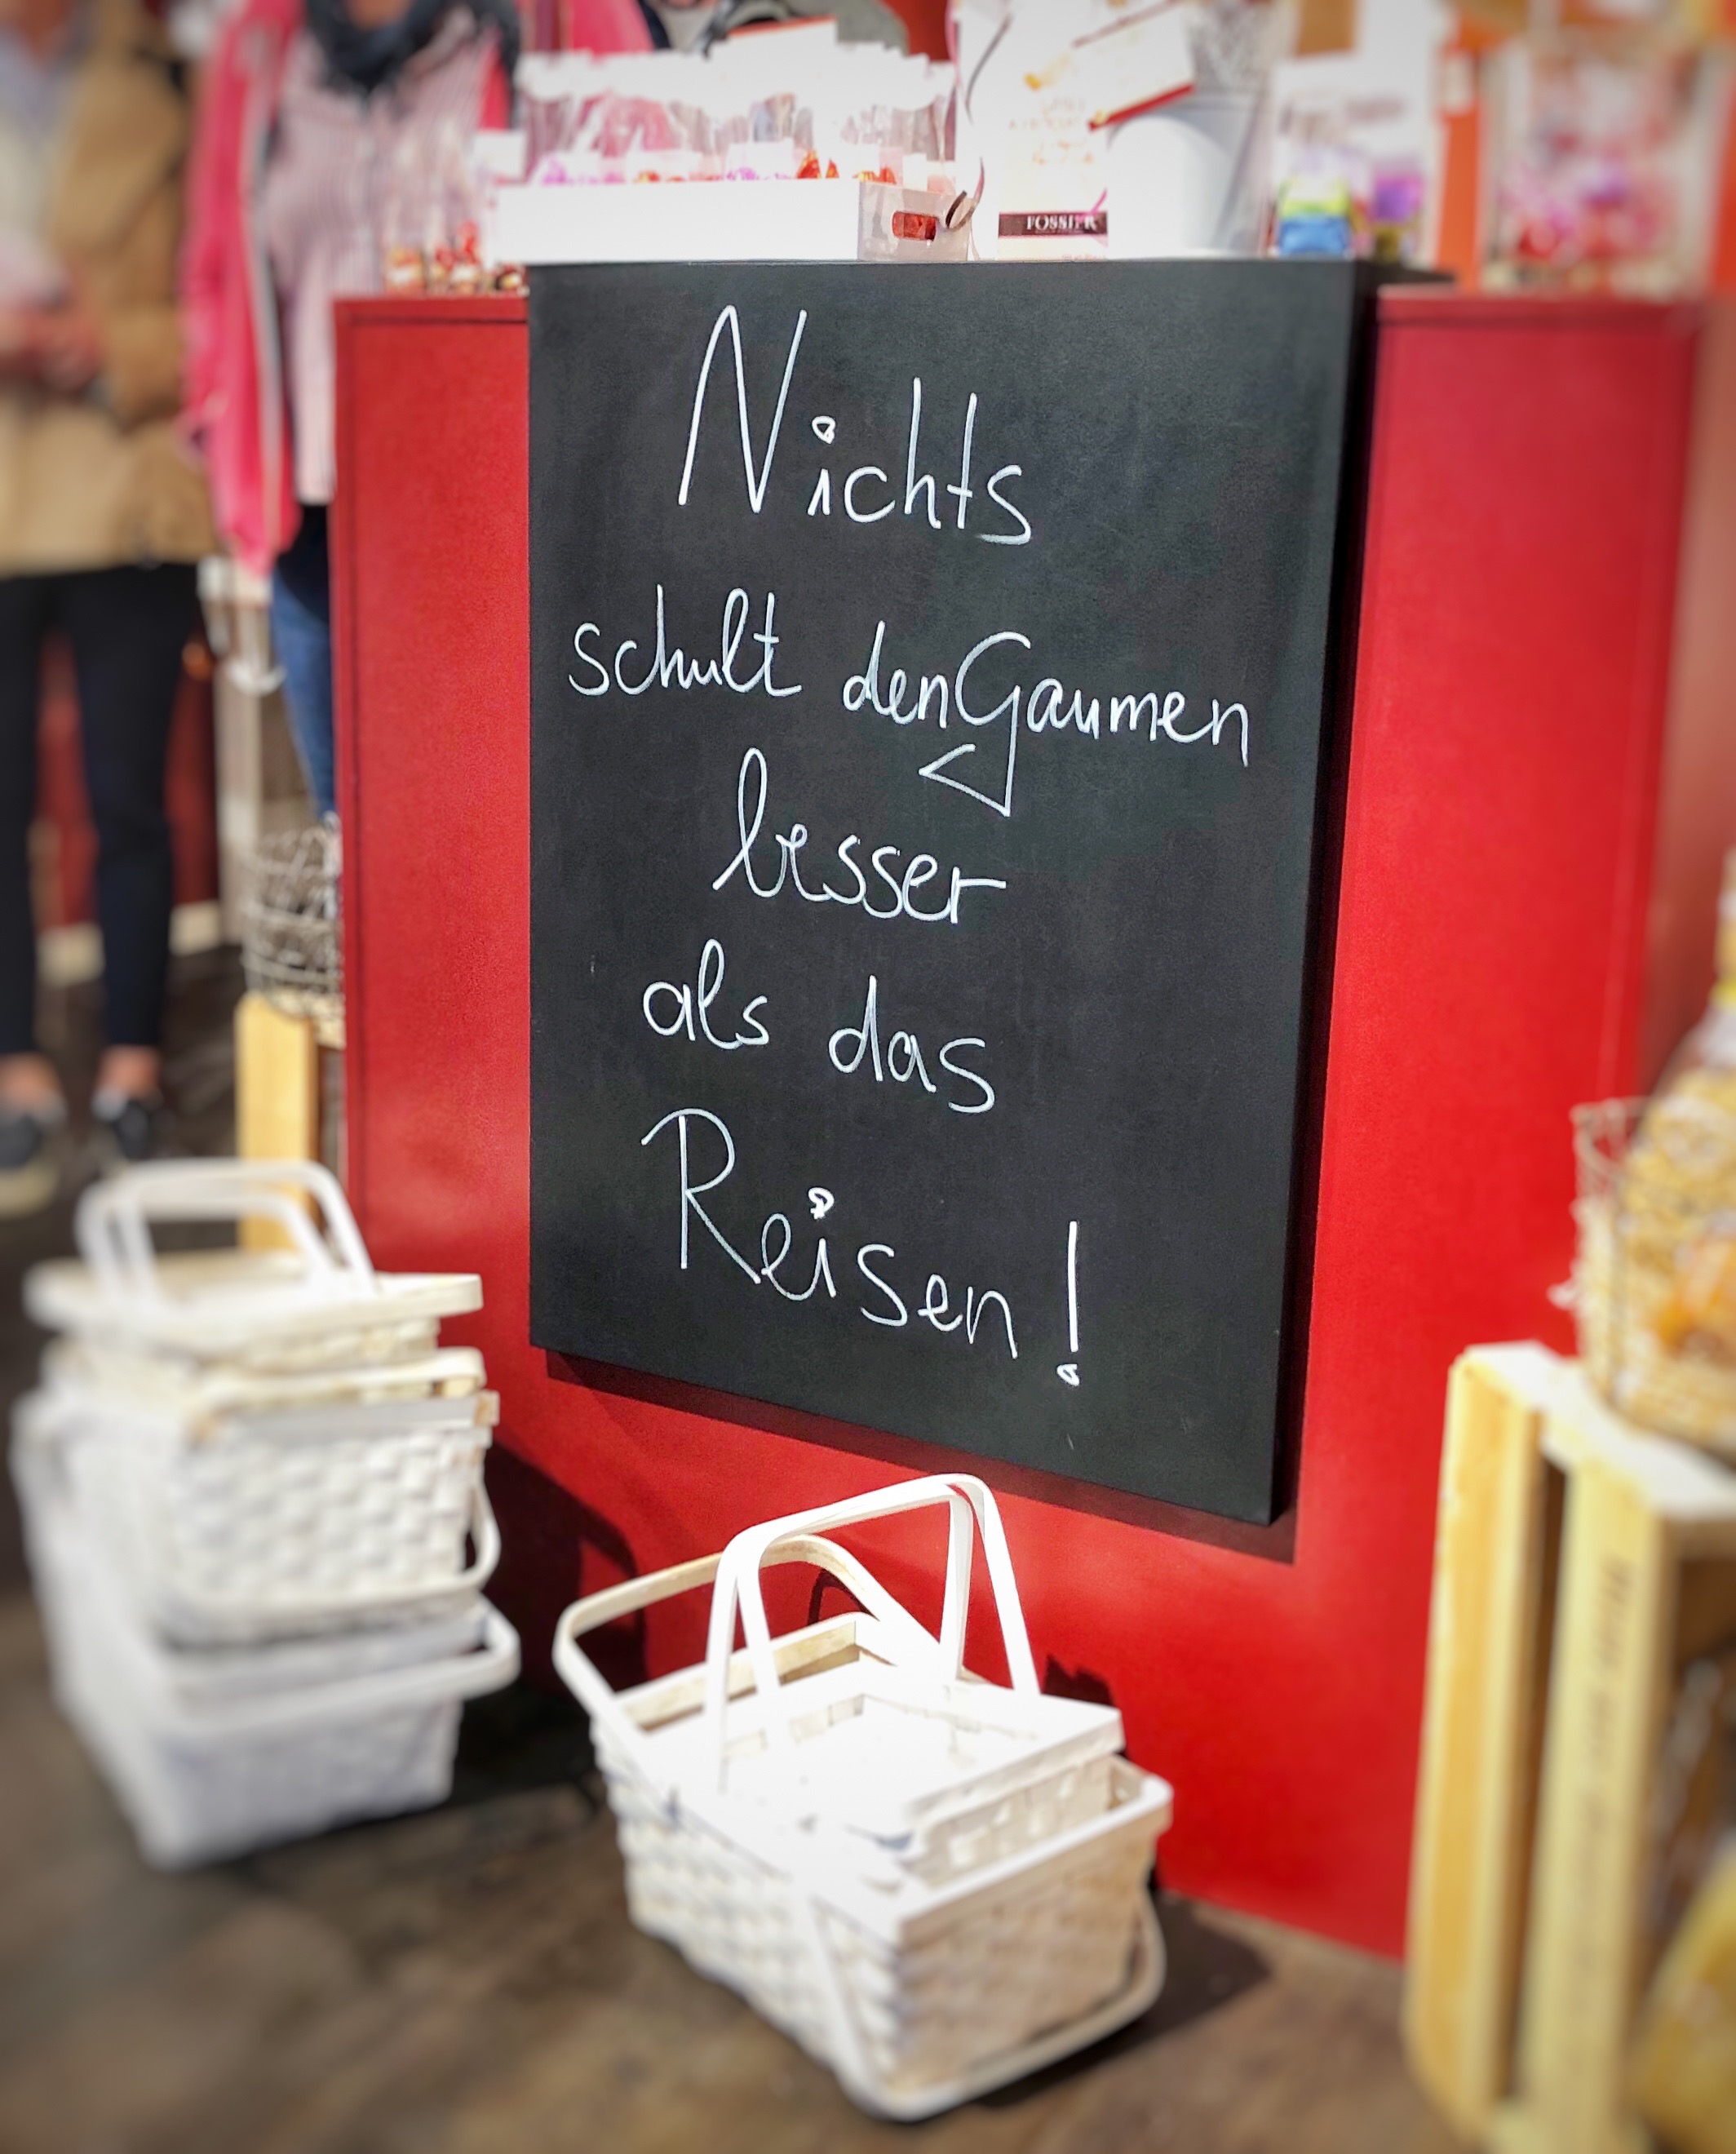 FOSSIER
Nichts
schult den Gaumen
besser
als das
Reisen!